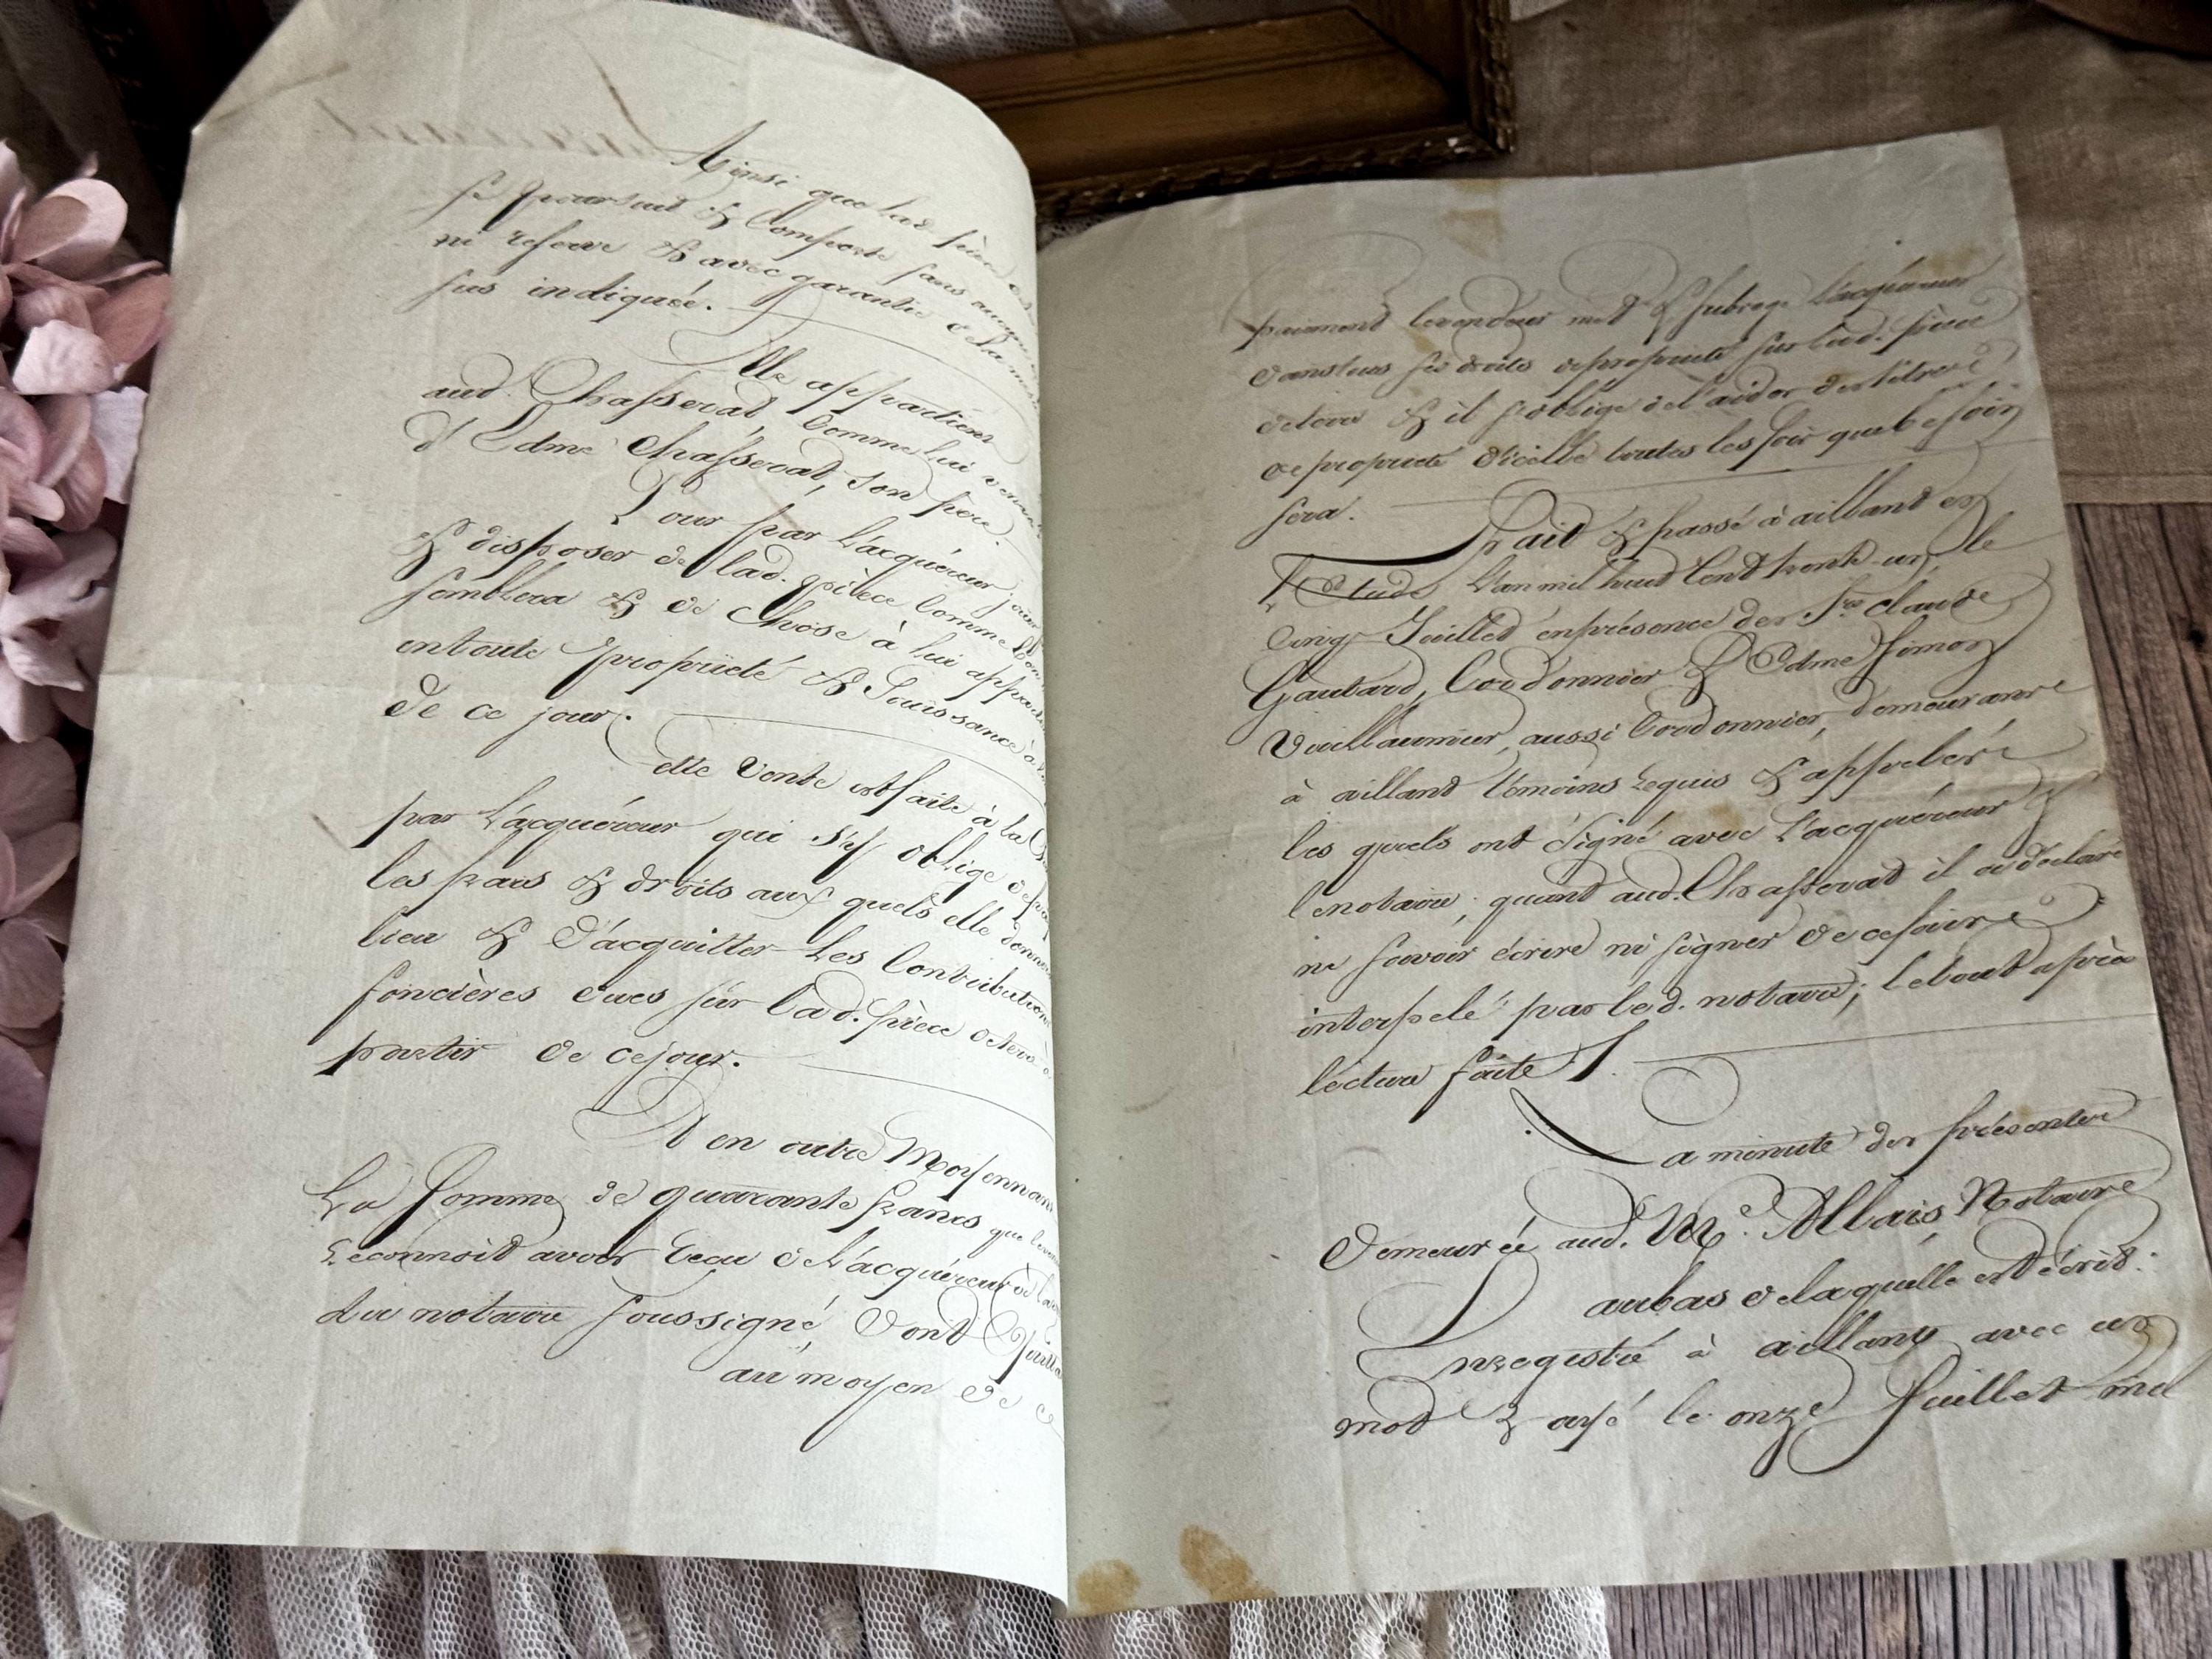 Ainsi que lad. pièce
se poursuit & Comporte sans aucune
ni reserve & avec garantie
sus indiquée.
Elle appartient
aud. Chasserat, Comme lui venant
d'Edme Chasserat, son père.
Pour par L'acquéreur jouir
& disposer de lad. pièce Comme bon
semblera & de Chose à lui appart
en toute propriété & Jouissance à
de ce jour.
Cette Vente est faite à la
par L'acquéreur qui s'y oblige de
les frais & droits aux quels elle donnera
lieu & d'acquitter Les Contributions
foncières dues sur lad. pièce de terre à
partir de ce jour.
Et en outre Moyennant
La somme de quarante francs que le
reconnoit avoir reçu de L'acquéreur à la
du notaire soussigné, Dont Quitt
au moyen de c
paiement le vendeur met & subroge L'acquéreur
dans tous ses droits de propriété sur lad. pièce
de terre & il s'oblige de l'aider des titres
de propriété d'icelle toutes les fois que besoin
sera.
Fait & passé à aillant en
L'Etude L'an mil huit Cent trente-un, le
Cinq Juillet en présence des Srs. Claude
Gautard, Cordonnier & Edme Simon
Vuillaumier, aussi Cordonnier, demeurant
à aillant témoins requis & appelés
les quels ont signé avec L'acquéreur &
le notaire; quant aud. Chasserat il a déclaré
ne savoir écrire ni signer de ce faire
interpelé par led. notaire; le tout après
lecture faite.
La minute des présentes
demeurée aud. Me. Allais, Notaire
au bas de laquelle est écrit:
Enregistré à aillant avec un
mot rayé le onze Juillet mil